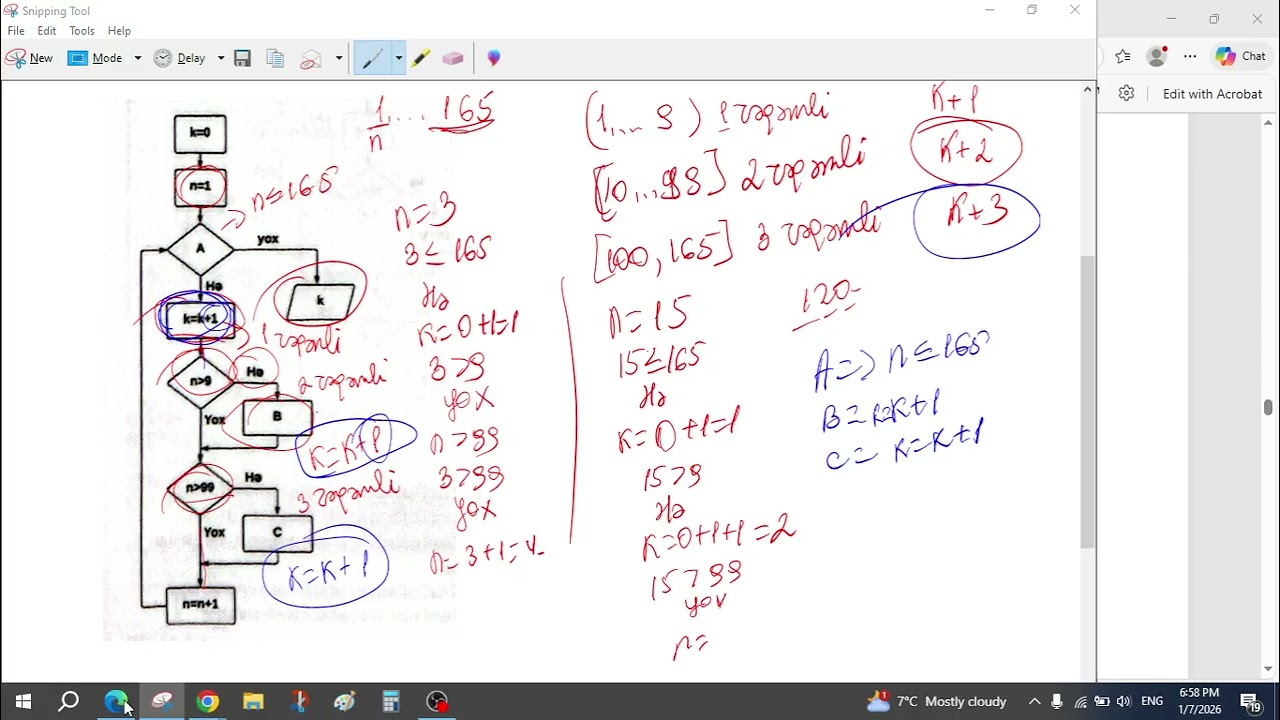 Snipping Tool
File Edit Tools Help
New Mode Delay
Chat
Edit with Acrobat
k=0
n=1
A
yox
Hə
k
k=k+1
n>9
Hə
B
Yox
n>99
Hə
C
Yox
n=n+1
1 .... 165
n
n≤165
1 rəqəmli
2 rəqəmli
K=K+1
3 rəqəmli
K=K+1
n=3
3≤165
Hə
K=0+1=1
3>9
yox
n>99
3>99
yox
n=3+1=4
(1,...9) 1 rəqəmli
K+1
[10,..99] 2 rəqəmli
K+2
[100,165] 3 rəqəmli
K+3
n=15
15≤165
Hə
K=0+1=1
15>9
Hə
K=0+1+1=2
15>99
yox
n=
120
A=> n≤165
B= K=K+1
C= K=K+1
7°C Mostly cloudy
ENG
6:58 PM
1/7/2026
19